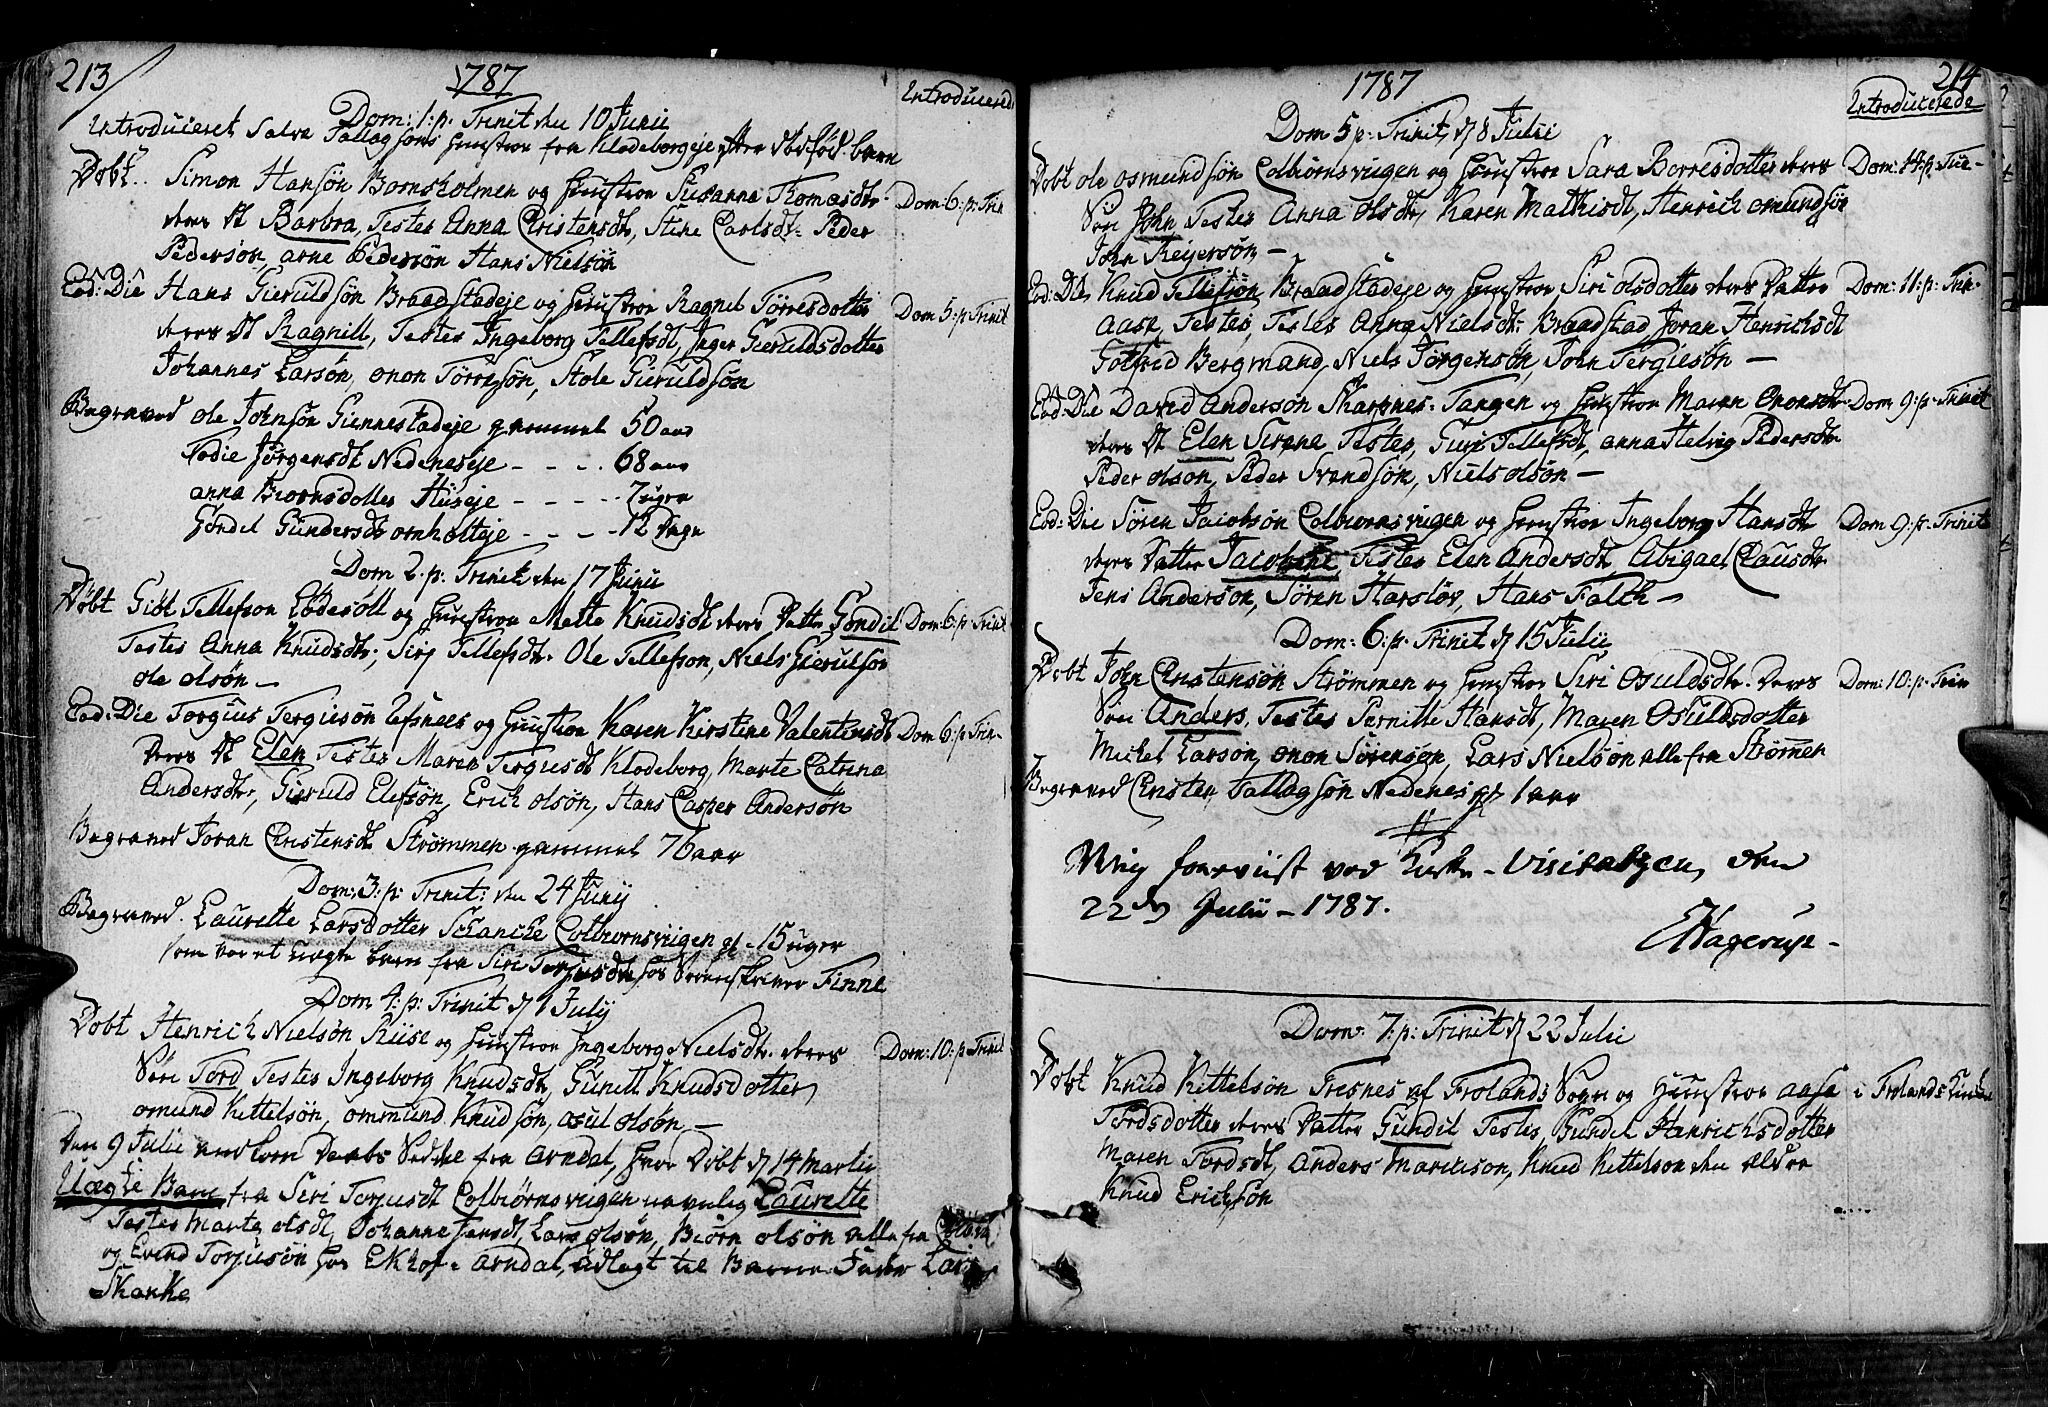 213
1787
Introducered
Dom: 1: p. Trinit den 10 Junii
Introduceret Salve Tallagsöns Hustroe fra Klodeborgeje efter dödföd barn
Döbt Simon Hansön Bornsholmen og Hustroe Susanna Thomasdtr Dom 6: p: Trin
deres dt Barbra, Testes Anna Christensdt, Stine Carlsdt: Peder
Pedersön, arne Pedersön Hans Nielsön
Eod: Die Hans Gieruldsön Braastadeje og Hustroe Ragnil Törresdotter Dom 5: p Trinit
deres dt Ragnill, Testes Ingeborg Tellefsdt, Inger Gieruldsdotter
Johannes Larsön, onon Törresön, Stole Gieruldsön
Begraved ole Johnsön Giennestadeje gammel 50 aar
Todie Jörgensdt Nedeneseje - - - - 68 aar
anna Biörnsdotter Huseje - - - - - 7 ugra
Göndel Gundersdt ornholteje - - - - 12 Dage
Dom 2: p: Trinit den 17 Junii
Döbt Giöl Tellefson Lödesöll og Hustroe Mette Knudsdt deres Datter Göndil Dom: 6: p: Trinit
Testes Anna Knudsdtr, Sirj Tellefsdt. Ole Tellefson, Niels Gierulsön
ole olsön -
Eod: Die Torgius Tergiusön Refsnees og Hustroe Karen Kirstine Valentinsdt Dom 6: p: Trin-
deres dt Elen Testes Maren Tergiusdt Klodeborg, Marte Catrina
Andersdtr, Gieruld Elefsön, Erich olsön, Hans Casper Andersön
Begraved Joran Christensdt Strömmen gammel 76 aar
Dom: 3: p: Trinit: den 24 Junij
Begraved. Laurette Larsdotter Schancke Colbiornsviigen gl - 15 uger
som var et uægte barn fra Siri Torjusdtr hos Sorenskriver Finne
Dom 4: p: Trinit d 1 Julij
Döbt Henrich Nielsön Riise og Hustroe Ingeborg Nielsdt. deres Dom: 10: p Trinit
Sön Tord Testes Ingeborg Knudsdt, Gunell Knudsdotter,
omund Kettelsön, ommund Knudsön, osul olsön, -
Den 9 Julii ankom Daabs Seddel fra Arndal, have Döbt d 14 Martii
Uægte Barn fra Siri Torjusdt Colbiörnsviigen navnlig Laurette
Testes Marte olsdt, Johanne Jensdt, Lars olsön, Biörn olsön alle fra Colbiö
og Evend Torjusön hos Ekhof i Arndal, udlagt til Barne Fader Lars
Skanke
214
1787
Introducerede
Dom 5 p: Trinit, d 8 Julii
Döbt ole osmundsön Colbiornsviigen og Hustroe Sara Börresdotter deres Dom: 14: p: Tri-
Sön John, Testes Anna olsdtr, Karen Mathisdt, Henrich omundsön
John Reijersön -
Eod: Die Knud Tellefsön Braadstadeje og Hustroe Siri olsdotter deres Datter Dom: 11: p: Trin.
Aase, Testes, Testes Anna Nielsdtr Braadstad, Joran Henrichsdt
Gotfred Bergmand, Niels Jörgensön, John Tergiesön -
Eod: Die David Andersön Skarpnes-Tangen og Hustroe Maren Ononsdtr Dom 9: p: Trinit
deres dt Elen Serene Testes, Guri Tellefsdt, anna Helvig Pedersdtr
Peder olson, Peder Svendsön, Niels olsön -
Eod: Die Sören Jacobsön Colbiornsviigen og Hustroe Ingeborg Hansdt Dom 9: p: Trinit
deres Datter Jacobine, Testes Elen Andersdt, Abigael Clausdtr
Jens Anderson, Sören Harslöv, Hans Falch -
Dom: 6: p: Trinit d 15 Julii
Döbt John Christensön Strömmen og Hustroe Siri Osuldsdtr. Deres Dom: 10: p: Trin
Sön Anders, Testes Pernille Hansdt, Maren Osuldsdotter
Michel Larsön, onon Sörensön, Lars Nielsön alle fra Strömen
Begraved Christen Tallagsön Nedenes gl 1 aar
Mig foreviist ved Kirke-Visitatzen, den
22de Julii - 1787.
EHagerup -
Dom: 7: p: Trinit d 22 Julii
Döbt Knud Kittelsön Tresnes af Frolands Sogn og Hustroe aase i Frolands Kirke
Tordsdotter deres Datter Gundil Testes, Gundel Hanrichsdotter
Maren Tordsdt, Anders Mariuson, Knud Kittelson den ældre
Knud Erichsön